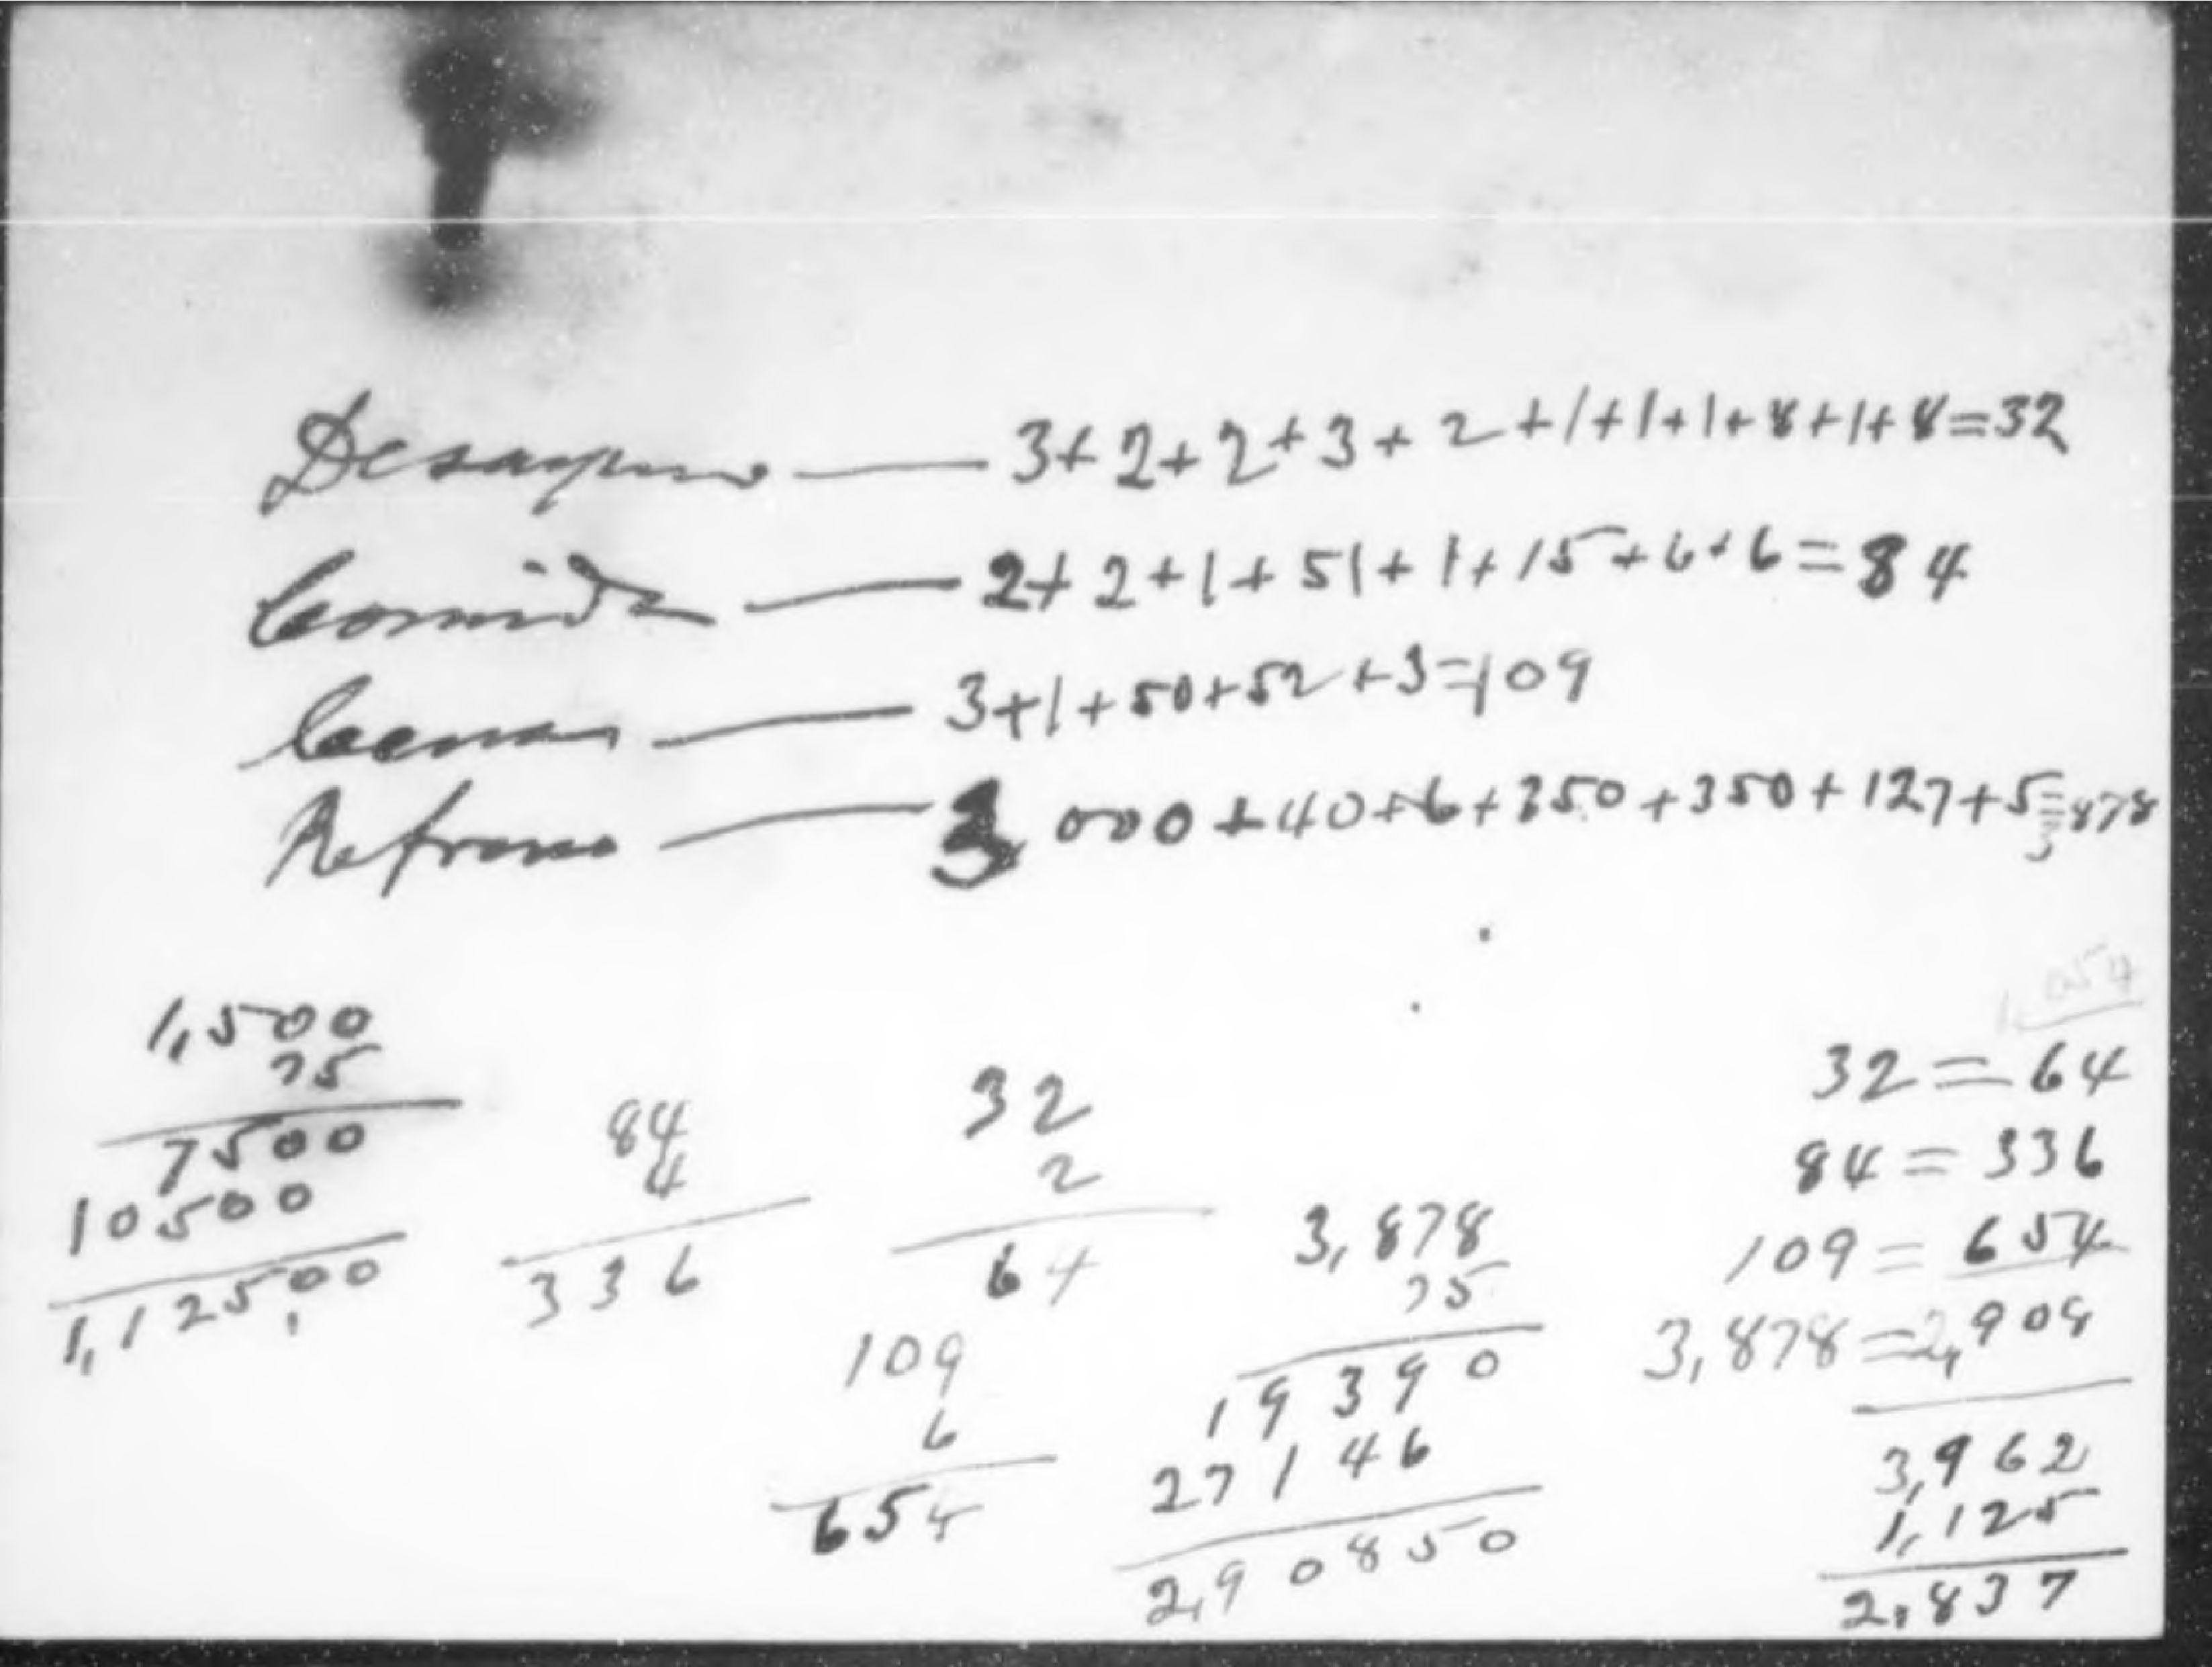 Desayuno — 3+2+2+3+2+1+1+1+8+1+8=32
Comida — 2+2+1+51+1+15+6+6=84
Cena — 3+1+50+52+3=109
Refresco — 3 000+40+6+350+350+127+5=3878
1,500
75
7500
10500
1,12500
84
4
336
32
2
64
109
6
654
3,878
75
19390
27146
2,90850
1,054
32=64
84=336
109=654
3,878=2,908
3,962
1,125
2,837